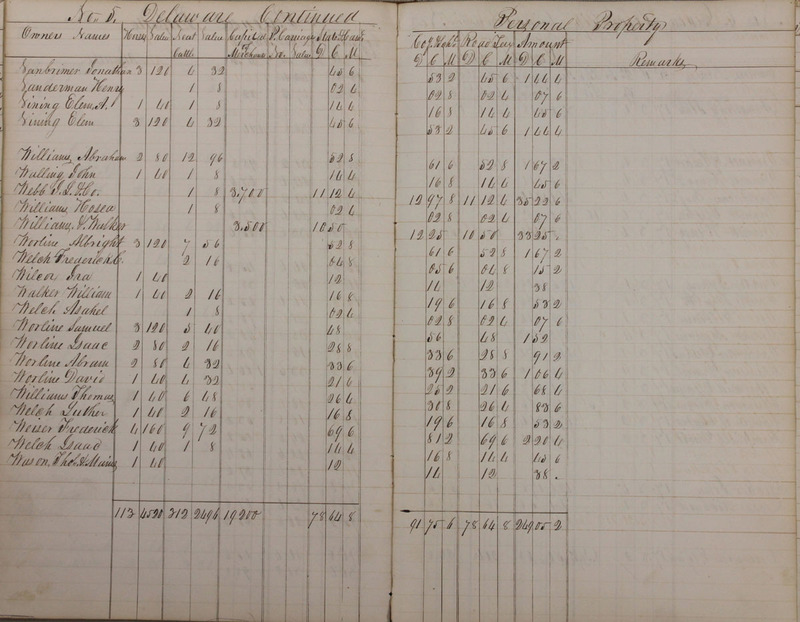 No. 5. Delaware Continued Personal Property
Owners Names Horses Value Neat Cattle Value Capital Merchants P. Carriages No. Value State & Canal D C M Co & Schl D C M Road Tax D C M Amount D C M Remarks
Vanbrimer Jonathan 3 120 4 32 45 6 53 2 45 6 1 44 4
Vanderman Henry 1 8 02 4 02 8 02 4 07 6
Vining Elem. A. 1 40 1 8 14 4 16 8 14 4 45 6
Vining Elem 3 120 4 32 45 6 53 2 45 6 1 44 4
Williams, Abraham 2 80 12 96 52 8 61 6 52 8 1 67 2
Walling, John 1 40 1 8 14 4 16 8 14 4 45 6
Webb & Co. 1 8 3.700 11 12 4 12 97 8 11 12 4 35 22 6
Williams, Hosea 1 8 02 4 02 8 02 4 07 6
Williams, & Walker 3.500 10 50 12 25 10 50 33 25.
Worline Albright 3 120 7 56 52 8 61 6 52 8 1 67 2
Welch Frederick C. 2 16 04 8 05 6 04 8 15 2
Wilcox Ira 1 40 12 14 12 38
Walker William 1 40 2 16 16 8 19 6 16 8 53 2
Welch Asahel 1 8 02 4 02 8 02 4 07 6
Worline Samuel 3 120 5 40 48 56 48 1 52
Worline Isaac 2 80 2 16 28 8 33 6 28 8 91 2
Worline Abram 2 80 4 32 33 6 39 2 33 6 1 06 4
Worline David 1 40 4 32 21 6 25 2 21 6 68 4
Williams Thomas 1 40 6 48 26 4 30 8 26 4 83 6
Welch Luther 1 40 2 16 16 8 19 6 16 8 53 2
Weiser Frederick 4 160 9 72 69 6 81 2 69 6 2 20 4
Welch Isaac 1 40 1 8 14 4 16 8 14 4 45 6
Wason, Thos. 1 40 12 14 12 38.
113 4520 312 2496 19200 78 64 8 91 75 6 78 64 8 249 05 2